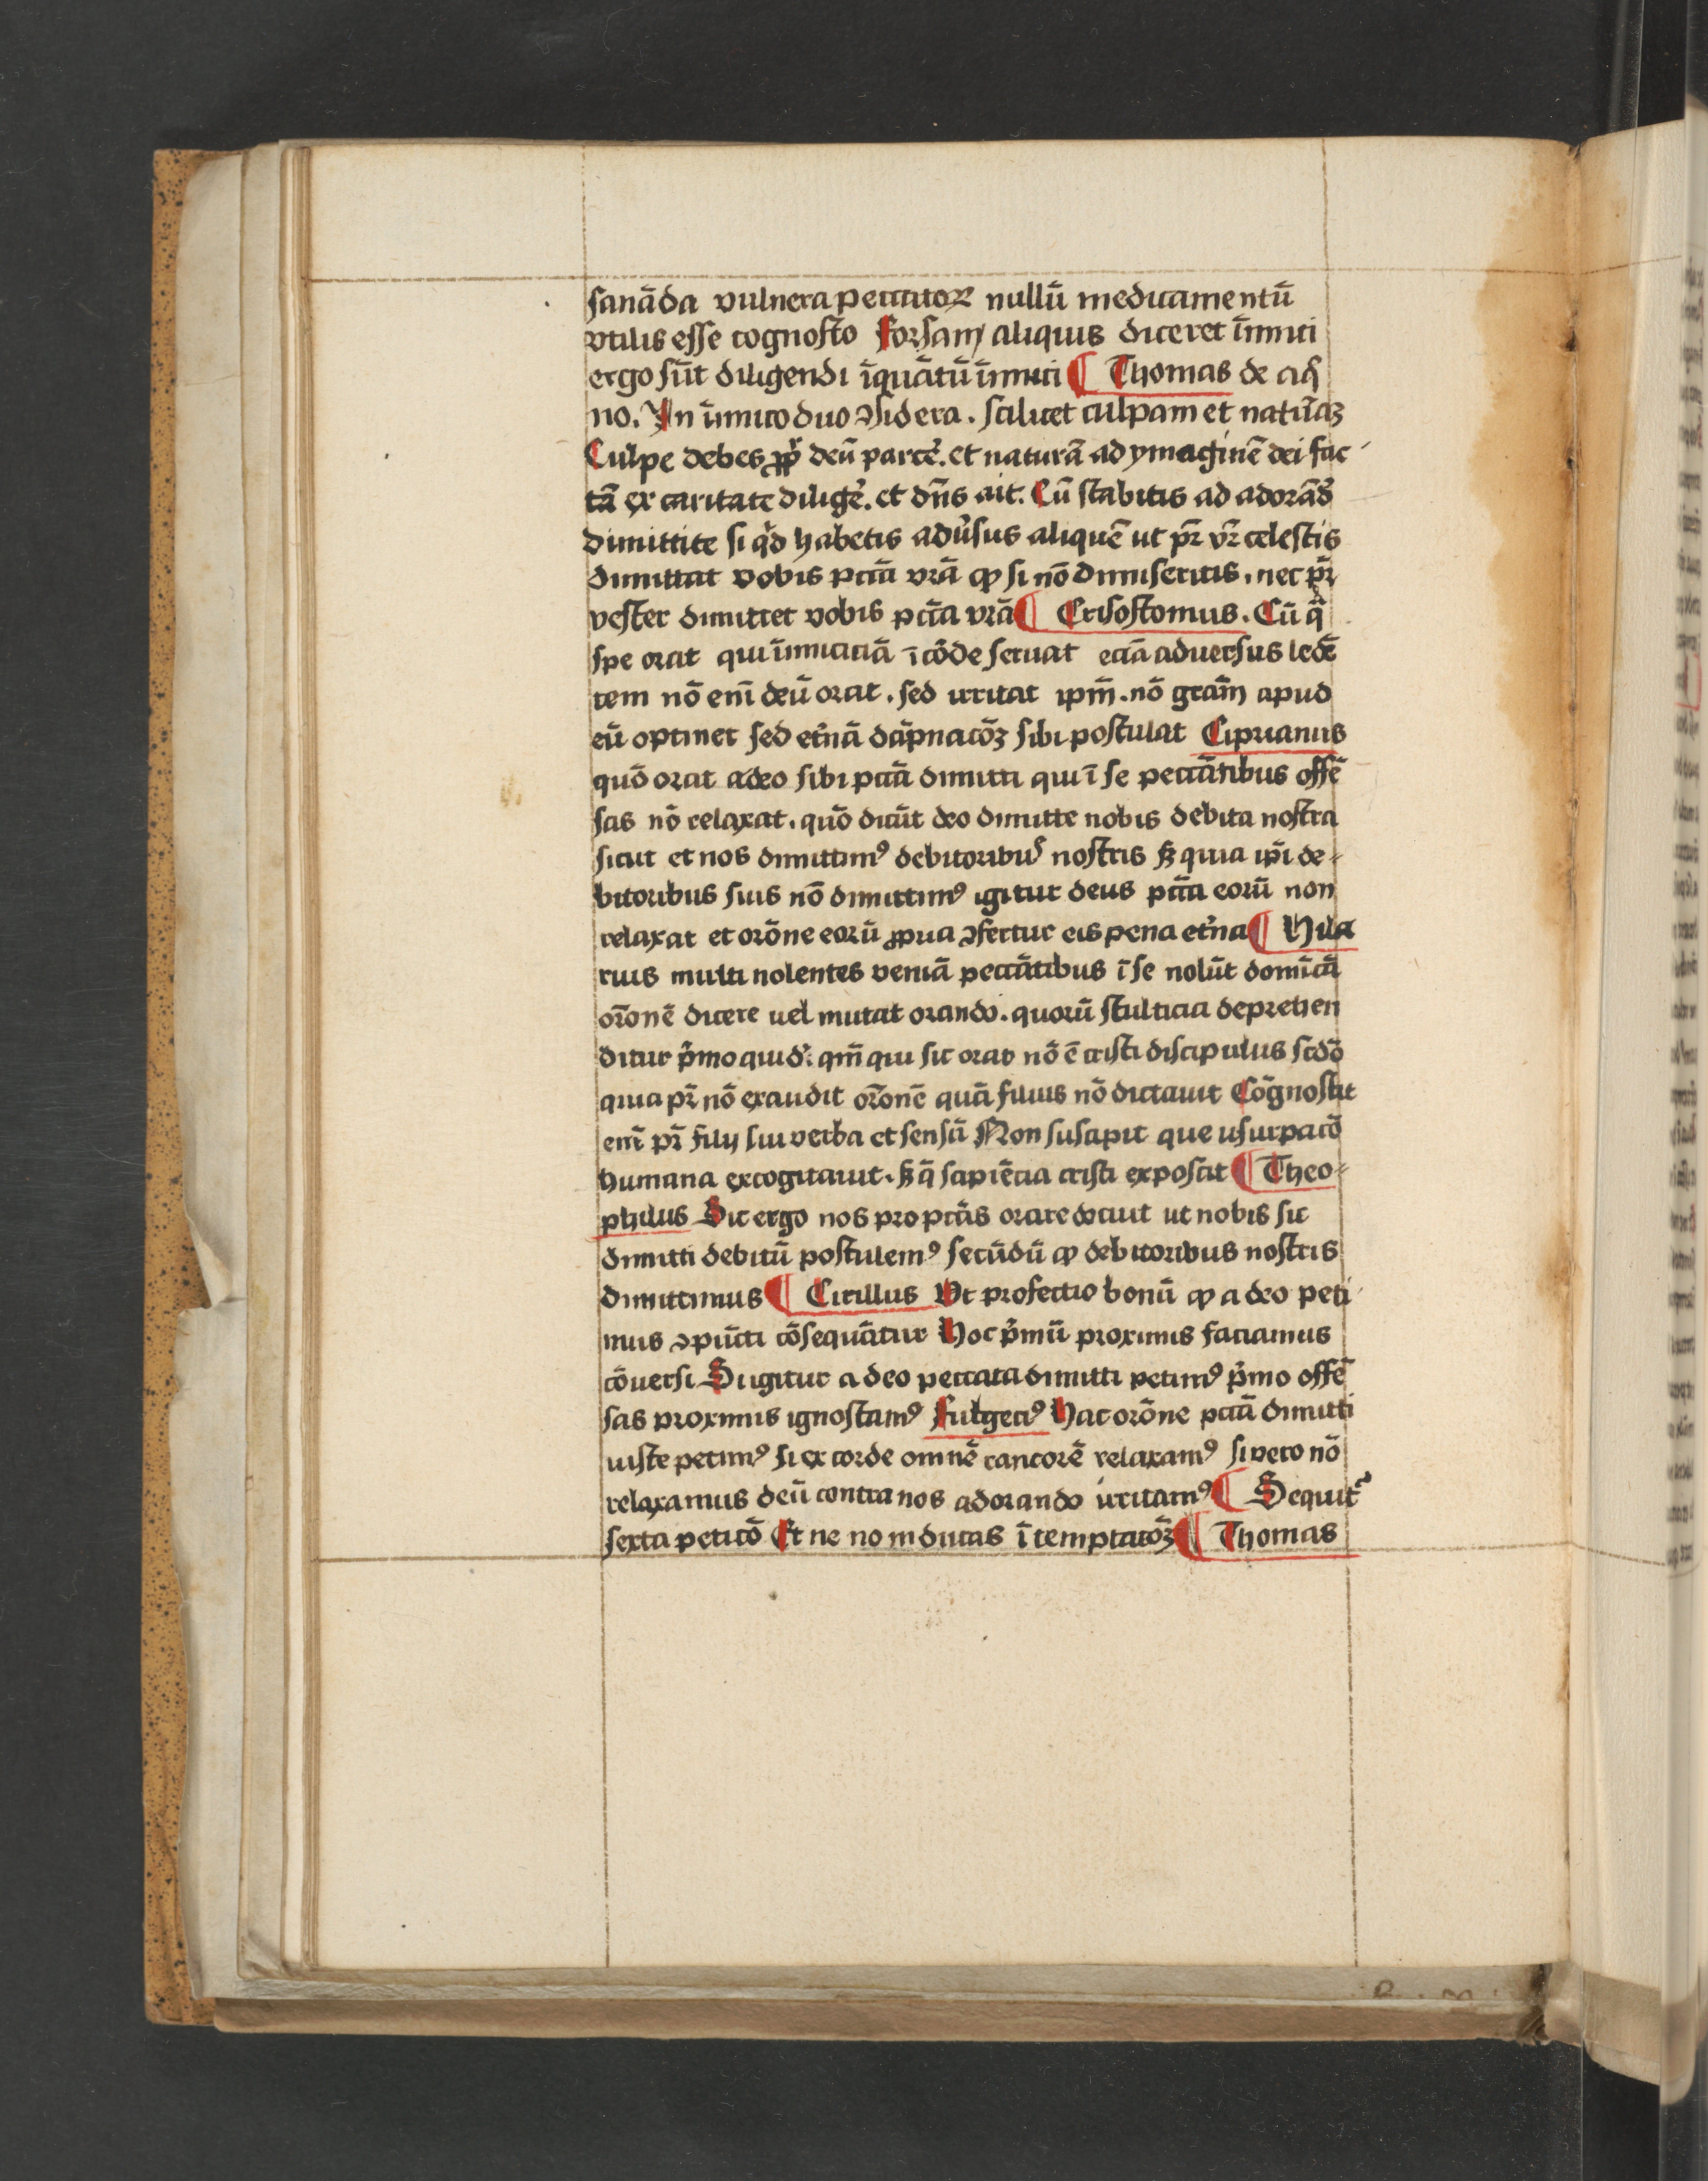 sanāda vulnera peccatoꝝ nullū medicamentū
vtilis esse cognosco forsam aliquis diceret īimici
ergo sūt diligendi īquātū īimici ¶ Thomas de aq̄
no. In īimico duo ↄsidera. scilicet culpam et natūaꝫ
Culpe debes ꝓpt̓ deū parcē. et naturā ad ymaginē dei fac
tā ex caritate diligē. et dn̄s ait. Cū stabitis ad adorād̓
dimittite si qͥd habetis adūsus aliquē ut pr̄ vr̄ celestis
dimittat vobis pctā vrā ꝙ si nō dimiseritis. nec pr̄
vester dimittet vobis pctā vrā ¶ Crisostomus. Cū qͣ
spe orat qui īimiciciā ī cōde seruat eciā aduersus ledē
tem nō enī deū orat. sed irritat ipm̄. nō grām apud
eū optinet sed et̓nā dāpnacōꝫ sibi postulat Ciprianus
quō orat adeo sibi pctā dimitti qui ī se peccātibus offē
sas nō relaxat. quō dicūt deo dimitte nobis debita nostra
sicut et nos dimittimꝰ debitoribuꝰ nostris sꝫ quia ip̄i de-
bitoribus suis nō dimittimꝰ igitur deus pctā eorū non
relaxat et orōne eorū ꝓpria ↄfertur eis pena et̓na ¶ Hila
rius multi nolentes veniā peccātibus ī se nolūt domīcā
orōonē dicere uel mutat orando. quorū stulticia deprehen
ditur p̓mo quid̓. qm̄ qui sic orat nō ē cristi discipulus scdō
quia pr̄ nō exaudit orōonē quā filius nō dictauit Cōgnoscit
enī pr̄ filij sui verba et sensū Non suscipit que usurpacō
humana excogitauit. sꝫ q̄ sapiēcia cristi exposcit ¶ Theo-
philus Sic ergo nos pro pctīs orare docuit ut nobis sic
dimitti debitū postulemꝰ secūdū ꝙ debitoribus nostris
dimittimus ¶ Cirillus Vt profectio bonū ꝙ a deo peti
mus ↄpūcti cōsequātur Hoc p̓mū proximis faciamus
cōuersi Si igitur a deo peccata dimitti petimꝰ p̓mo offē
sas proximis ignoscamꝰ Fulgeciꝰ Hac orōne pctā dimitti
iuste petimꝰ si ex corde omnē rancorē relaxamꝰ si vero nō
relaxamus deū contra nos adorando irritamꝰ ¶ Sequit᷑
sexta peticō Et ne no inducas ī temptacōꝫ ¶ Thomas